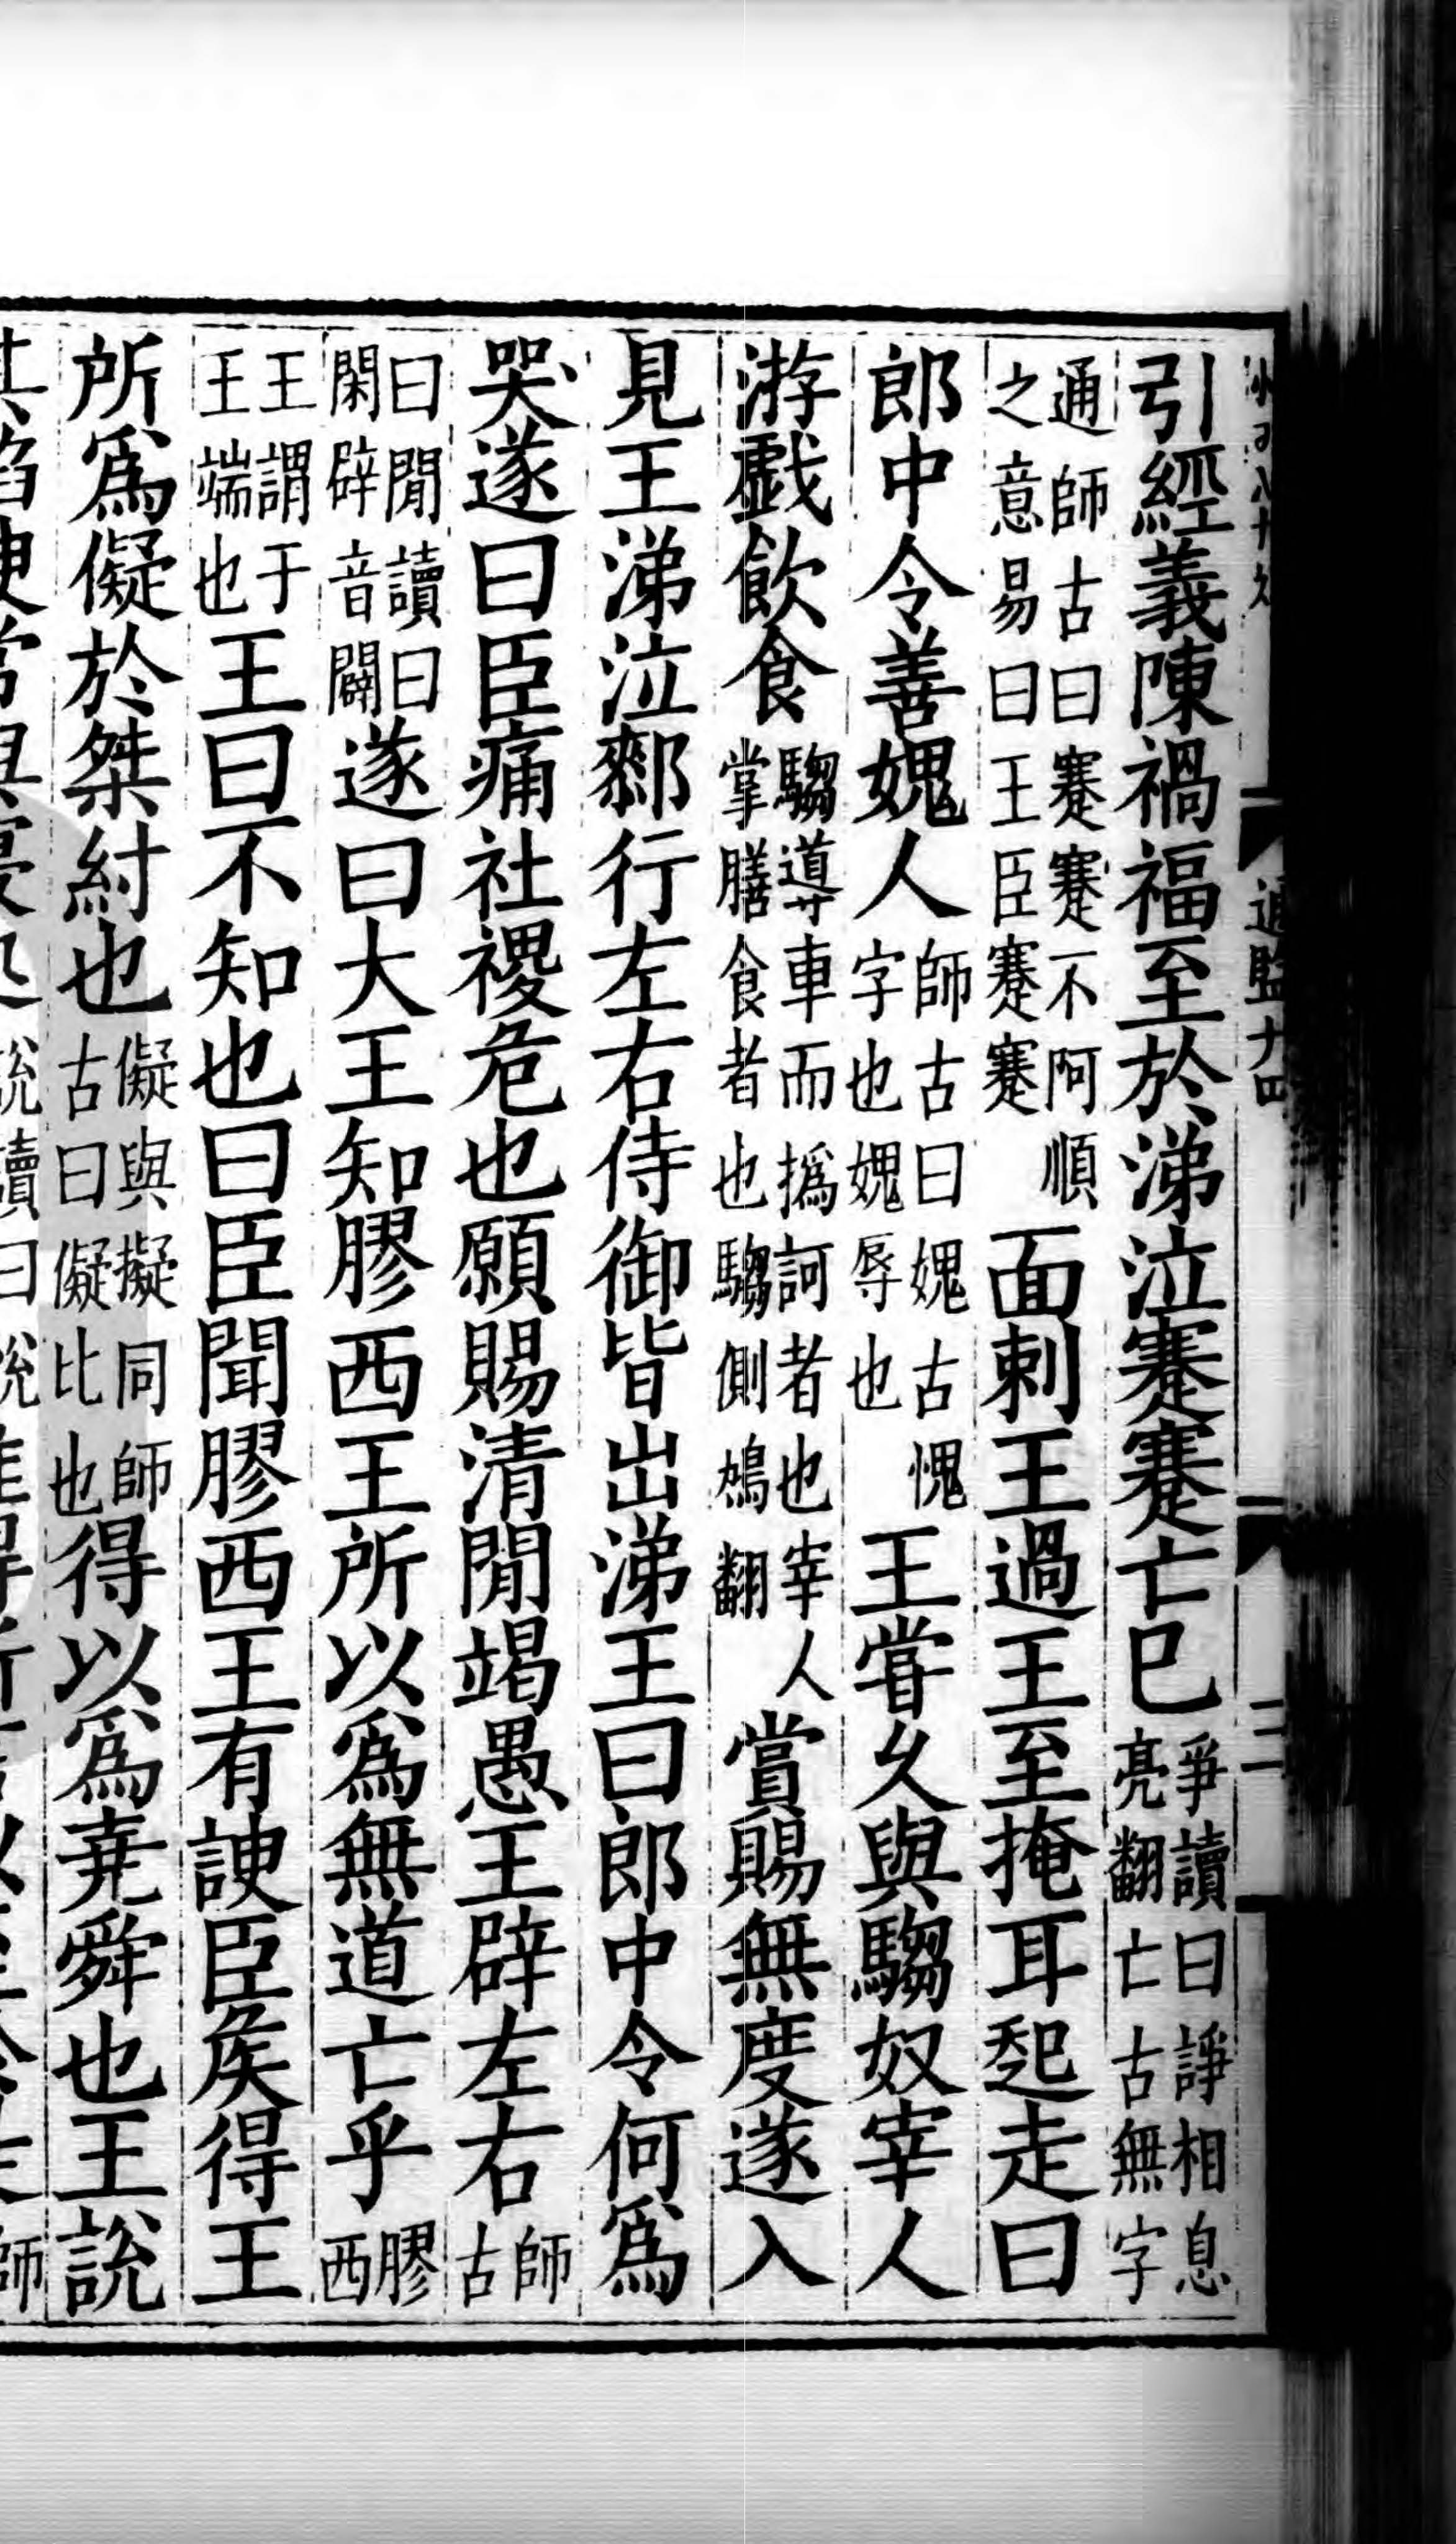 引經義陳禍福至於涕泣蹇蹇亡已爭讀曰諍相息亮翻亡古無字
通師古曰蹇蹇不阿順之意易曰王臣蹇蹇面刺王過王至掩耳起走曰
郎中令善媿人師古曰媿古愧字也媿辱也王嘗久與騶奴宰人
游戲飲食騶導車而撝訶者也宰人掌膳食者也騶側鳩翻賞賜無度遂入
見王涕泣鄰行左右侍御皆出涕王曰郎中令何爲
哭遂曰臣痛社稷危也願賜清閒竭愚王辟左右師古
曰閒讀曰閑辟音闢遂曰大王知膠西王所以爲無道亡乎膠西
王謂于王端也王曰不知也曰臣聞膠西王有諛臣矦得王
所爲儗於桀紂也儗與擬同師古曰儗比也得以爲堯舜也王說
通監二十四